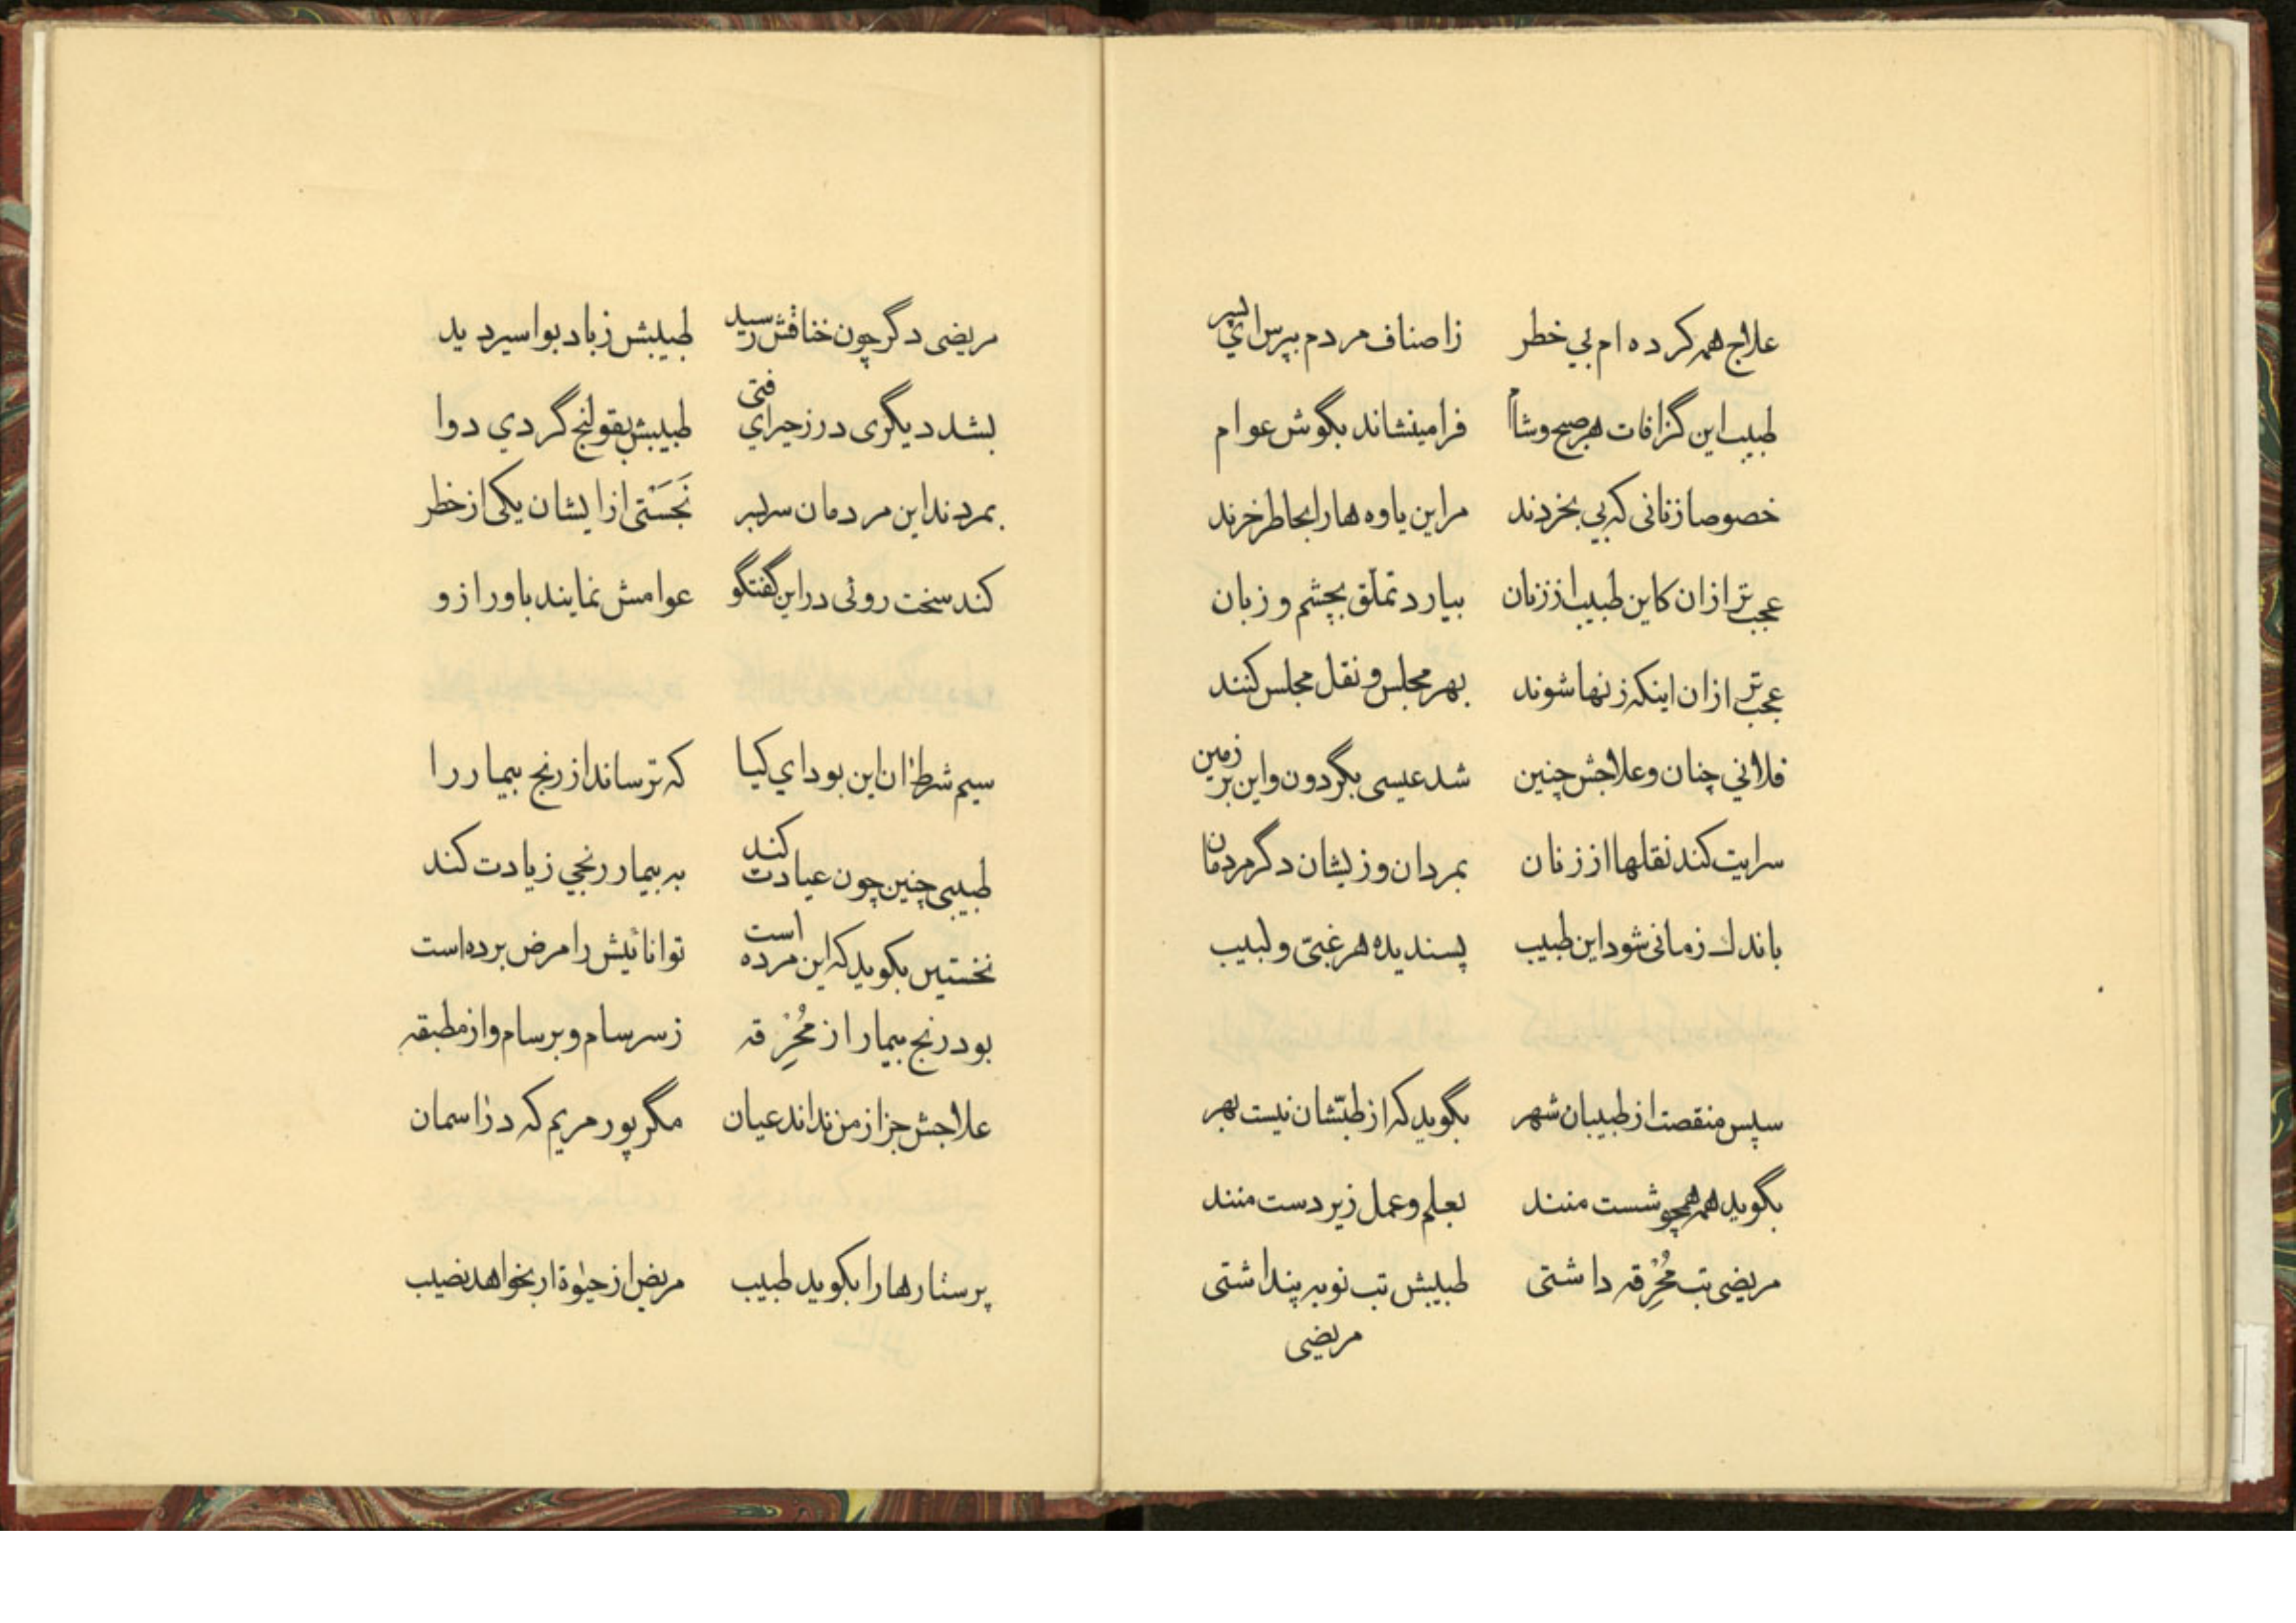 علاج همه کرده ام بي خطر زاصناف مردم بپرس اي پسر
طبیب این گزافات هر صبح وشام فرامینشاند بگوش عوام
خصوصا زنانی که بي بخردند مراین یاوه هارا بخاطر خرند
عجب تر ازان کاین طبیب از زنان بیارد تملّق بچشم و زبان
عجب تر ازان اینکه زنها شوند بهر مجلس و نقل مجلس کنند
فلاني چنان وعلاجش چنین شد عیسی بگردون و این بر زمین
سرایت کند نقلها از زنان بمردان وزیشان دگر مردمان
باندك زمانی شود این طبیب پسندیده هر غبیّ و لبیب
سپس منقصت از طبیبان شهر بگوید که از طبّشان نیست بهر
بگوید همه همچو شست منند بعلم وعمل زیر دست منند
مریضی تب مُحْرِقه داشتی طبیبش تب نوبه پنداشتی
مریضی
مریضی دگر چون خناقش رسید طبیبش زباد بواسیر دید
بشد دیگری در زحیر اي فتی طبیبش بقولنج کردي دوا
بمردند این مردمان سربسر نَجَسْتی ازایشان یکی از خطر
کند سخت روئی دراین گفتگو عوامش نمایند باور ازو
سیم شرط ان این بود اي کیا که ترساند از رنج بیمار را
طبیبی چنین چون عیادت کند به بیمار رنجي زیادت کند
نخستین بگوید که این مرده است توانائیش را مرض برده است
بود رنج بیمار از مُحْرِقه زسرسام و برسام واز مطبقه
علاجش جز از من نداند عیان مگر پور مریم که در اسمان
پرستارها را بگوید طبیب مریض از حیٰوة ار بخواهد نصیب